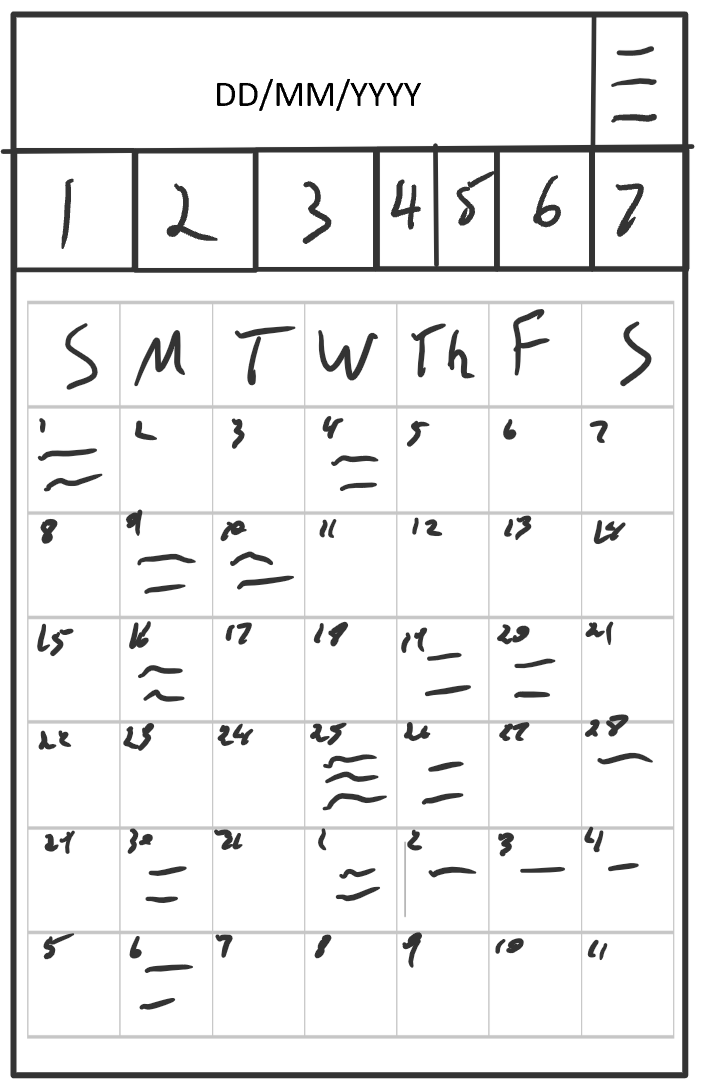 DD/MM/YYYY
1 2 3 4 5 6 7
S M T W Th F S
1 2 3 4 5 6 7
8 9 10 11 12 13 14
15 16 17 18 19 20 21
22 23 24 25 26 27 28
29 30 31 1 2 3 4
5 6 7 8 9 10 11